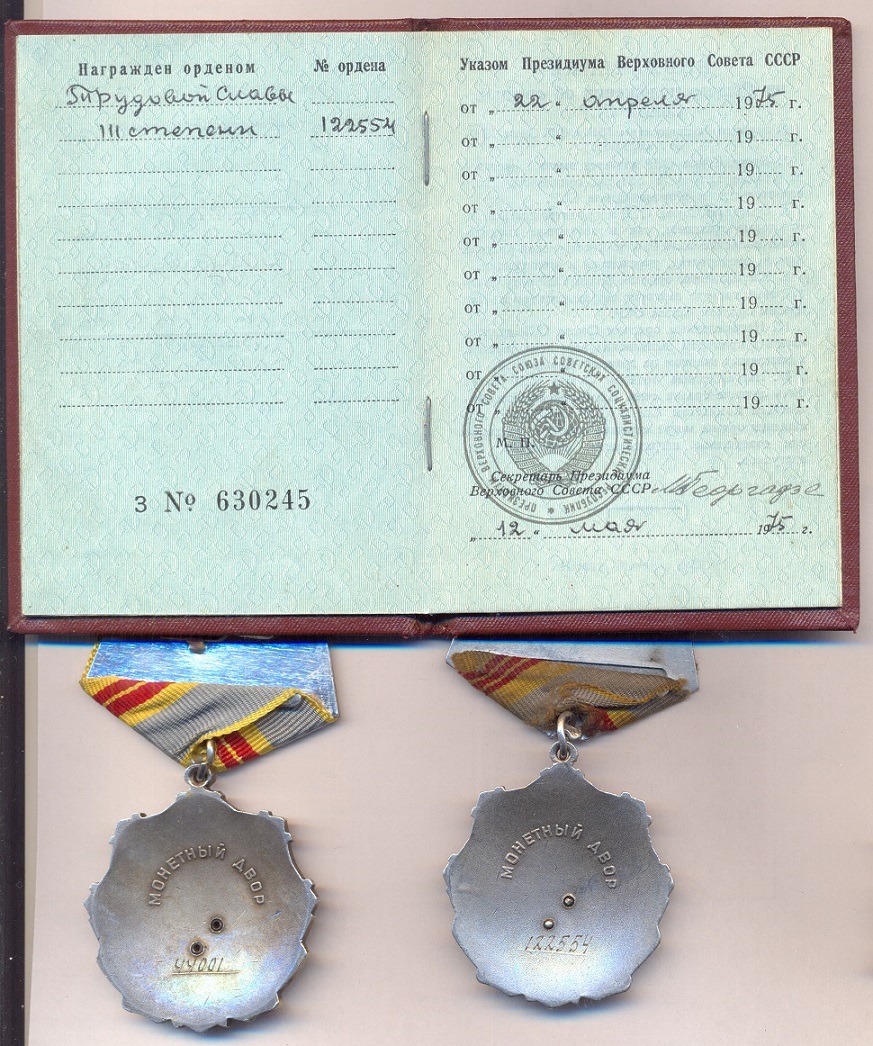 Награжден орденом
№ ордена
Трудовой Славы
III степени 122554
З № 630245
Указом Президиума Верховного Совета СССР
от „ 22 “ апреля 1975 г.
от „ “ 19 г.
от „ “ 19 г.
от „ “ 19 г.
от „ “ 19 г.
от „ “ 19 г.
от „ “ 19 г.
от „ “ 19 г.
от „ “ 19 г.
от „ “ 19 г.
М. П.
ПРЕЗИДИУМ ВЕРХОВНОГО СОВЕТА СОЮЗА СОВЕТСКИХ СОЦИАЛИСТИЧЕСКИХ РЕСПУБЛИК
Секретарь Президиума
Верховного Совета СССР МГеоргадзе
„ 12 “ мая 1975 г.
МОНЕТНЫЙ ДВОР
44001
МОНЕТНЫЙ ДВОР
122554